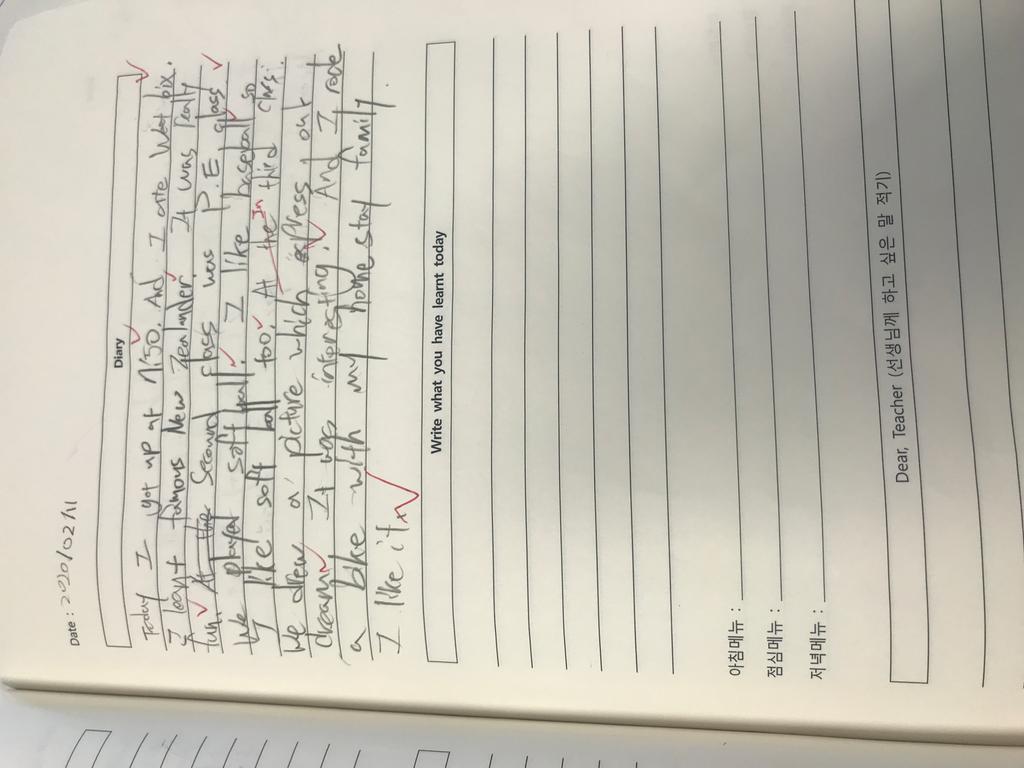 Date : 2020/02/11
Diary
Today I got up at 7:30. And I ate Weet bix.
I leant famous New Zealander. It was really
fun. At the Second class was P.E class
We played soft ball. I like baseball so
I like soft ball too. At the In third class.
We drew a picture which express our
dream. It was interesting. And I rode
a bike with my home stay family.
I like it.
Write what you have learnt today
아침메뉴 :
점심메뉴 :
저녁메뉴 :
Dear, Teacher (선생님께 하고 싶은 말 적기)